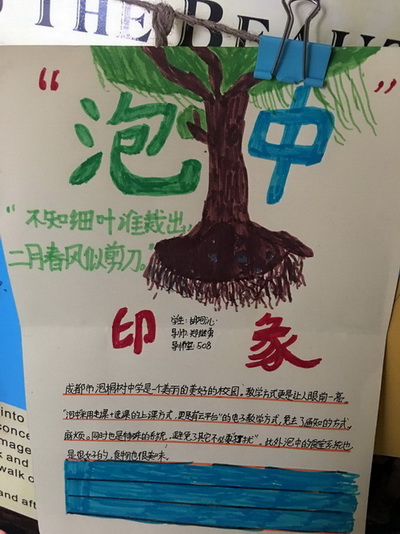 THE BEAU
“泡中”
“不知细叶谁裁出,
二月春风似剪刀。”
印象
学生:
导师:
导师室:508
成都市泡桐树中学是一个美丽而美好的校园，教学方式更是让人眼前一亮。
的上课方式，更是有云平台”的电子教学方式，免去了通知的方式
麻烦。同时也是特殊的系统，避免了其它不必要“
是很好的，食物也很美味。
into
conce
image
k and
walk o
and aft